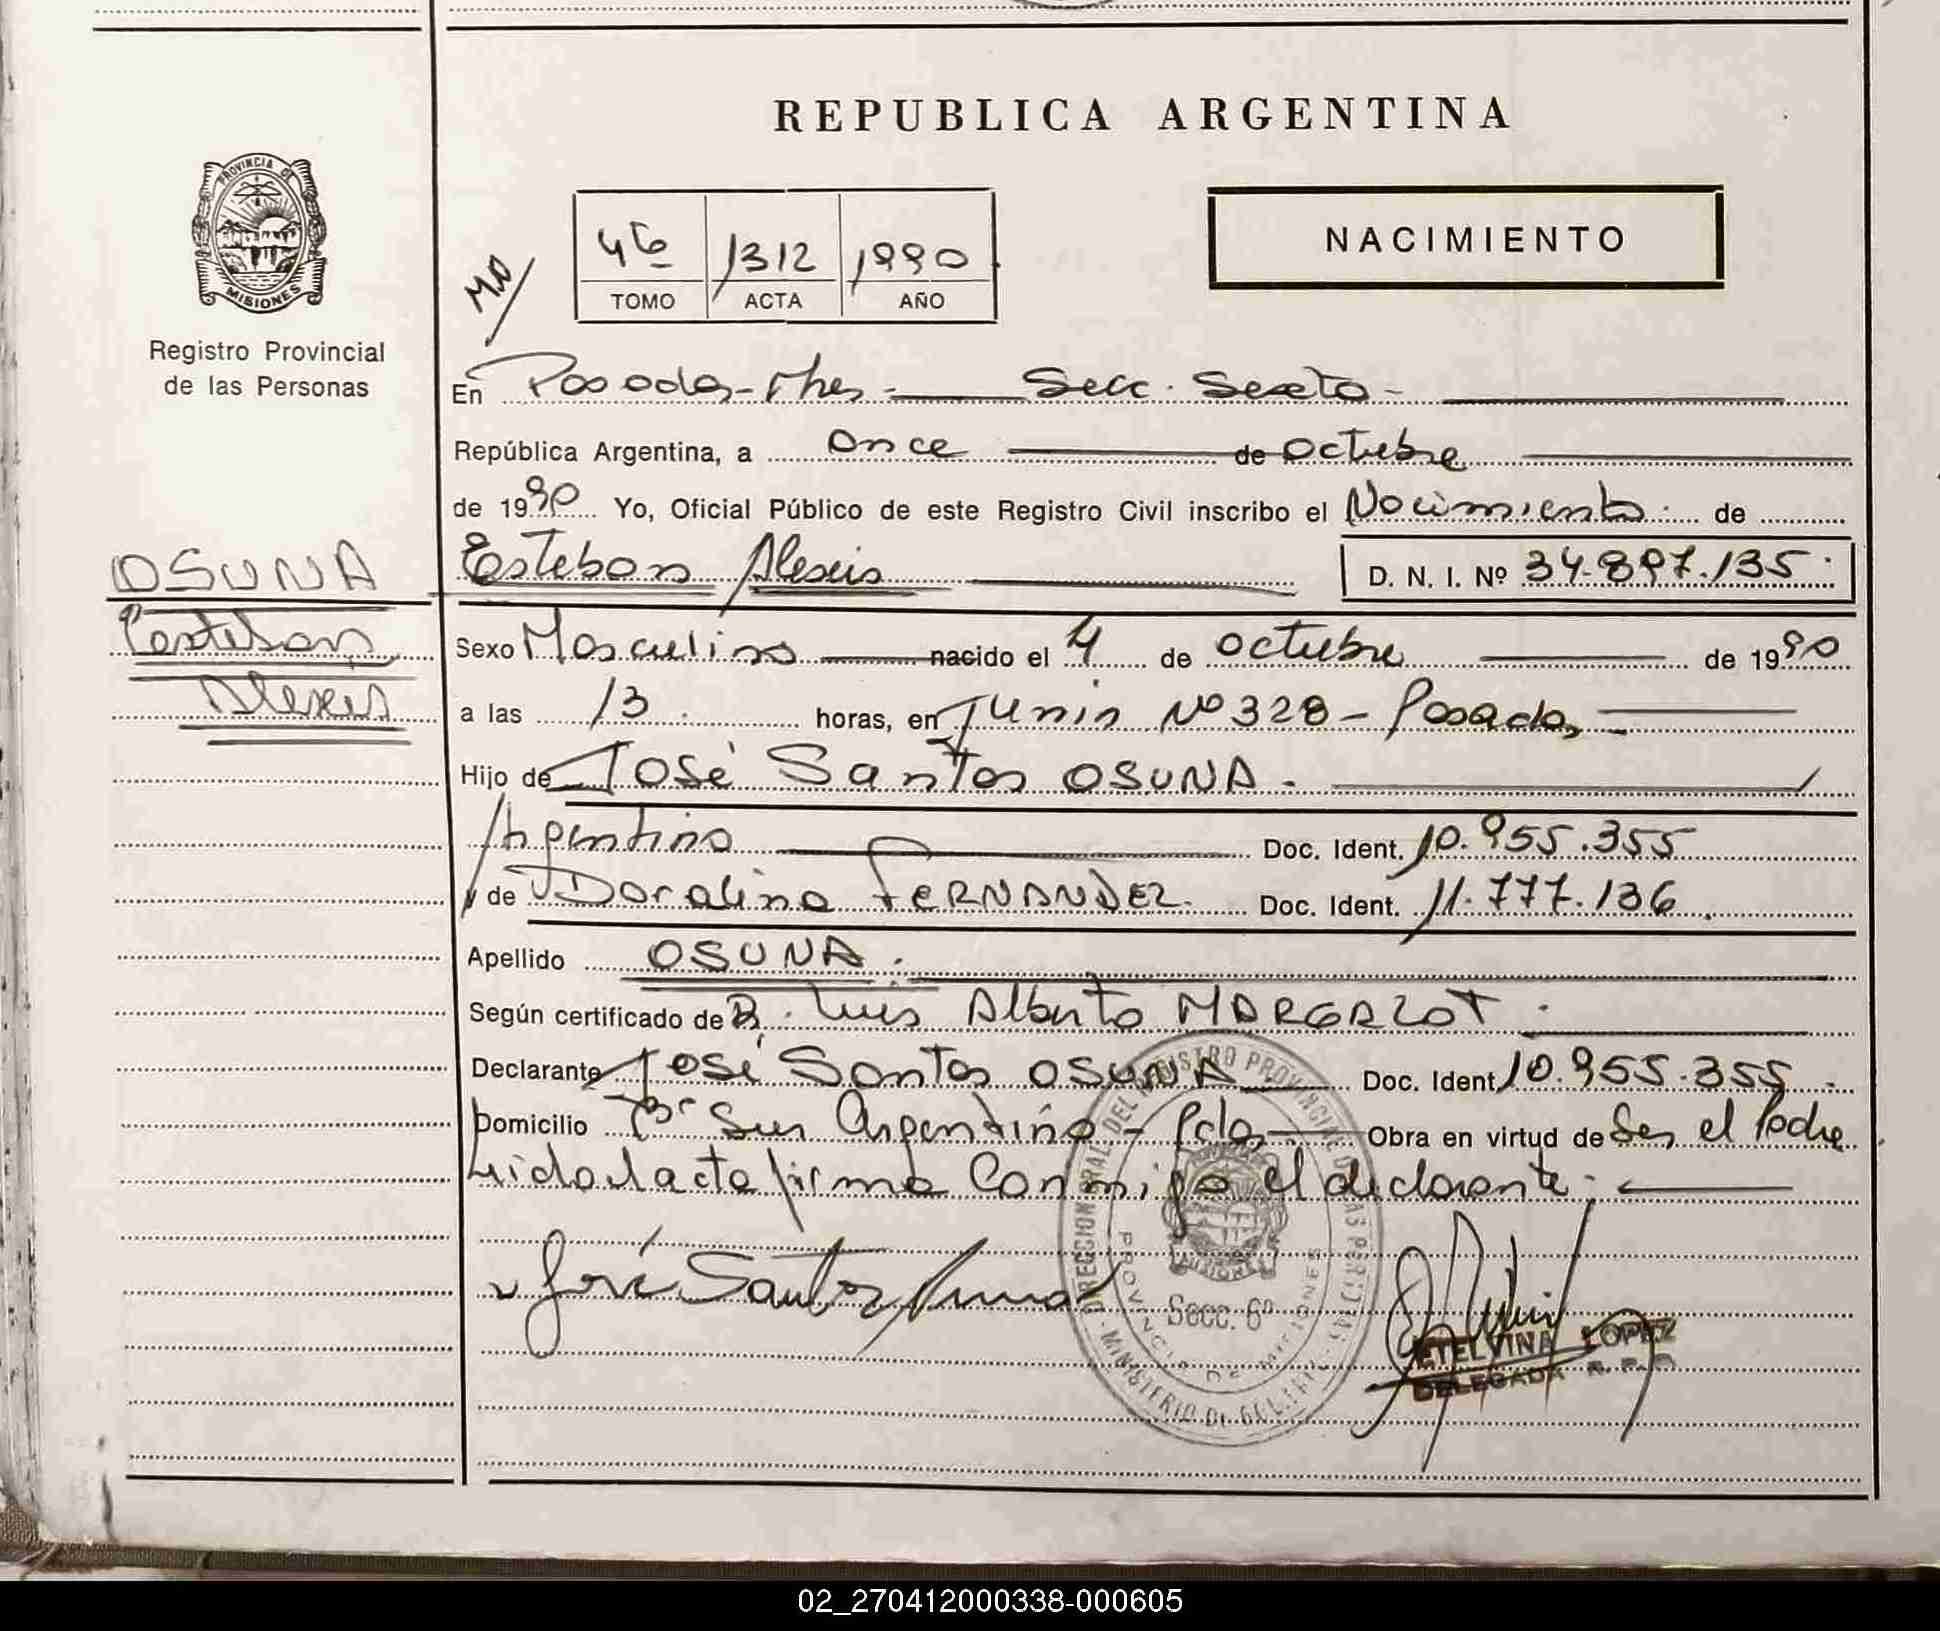 REPUBLICA ARGENTINA
PROVINCIA DE
MISIONES
Registro Provincial
de las Personas
46 1312 1990
TOMO ACTA AÑO
NACIMIENTO
En Posadas-Mnes - Secc. Sexta -
República Argentina, a once de octubre
de 1990 Yo, Oficial Público de este Registro Civil inscribo el Nacimiento de
OSUNA
Esteban Alexis
D. N. I. Nº 34.897.135
Esteban
Alexis
Sexo Masculino nacido el 4 de octubre de 1990
a las 13 horas, en Junin Nº 328 - Posadas
Hijo de José Santos OSUNA.
Argentino Doc. Ident. 10.955.355
y de Doralina FERNANDEZ. Doc. Ident. 11.777.136
Apellido OSUNA.
Según certificado de Luis Alberto
Declarante José Santos OSUNA Doc. Ident. 10.955.355.
Domicilio Bº Sur Argentino - Pdas Obra en virtud de Ser el Padre
Leida el acta firma Conmigo el declarante.
José Santos Osuna
DIRECCION GENERAL DEL REGISTRO PROVINCIAL DE LAS PERSONAS
MINISTERIO DE
PROVINCIA DE MISIONES
MISIONES
Secc. 6ª
ETELVINA LOPEZ
DELEGADA R. P. P.
02_270412000338-000605